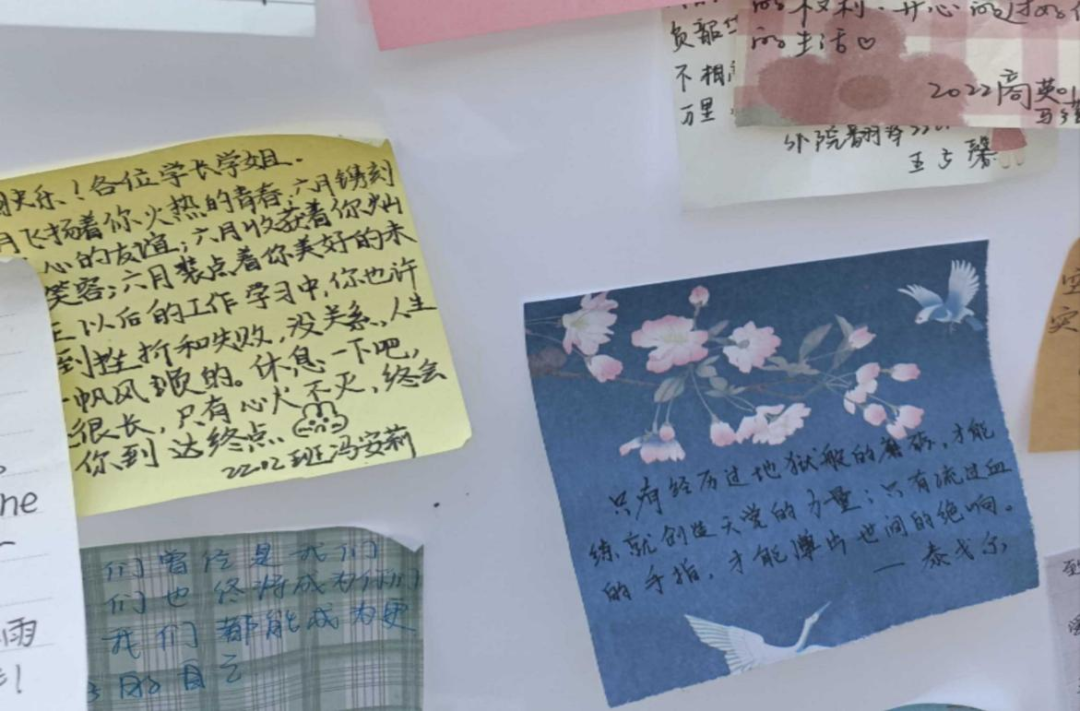 快乐!各位学长学姐.
月飞扬着你火热的青春;六月镌刻
心的友谊;六月收获着你灿
笑容;六月装点着你美好的未
以后的工作学习中,你也许
到挫折和失败,没关系,人生
一帆风顺的。休息一下吧,
很长,只有心火不灭,终会
你到达终点.
2202班冯安莉
们曾经是我们
们也终将成为你们
我们都能成为更
好的自己
he
雨
负韶华
不相
万里
外院翻译
王
馨
的权利.开心的过好
的生活♡
2022商英
只有经历过地狱般的磨砺,才能
练就创造天堂的力量;只有流过血
的手指,才能弹出世间的绝响。
——泰戈尔
实